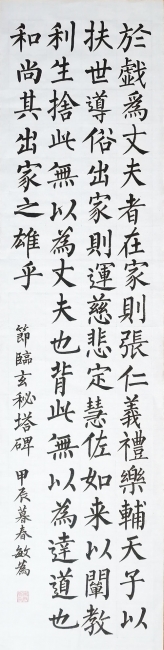 於戯爲丈夫者在家則張仁義禮樂輔天子以
扶世導俗出家則運慈悲定慧佐如来以闡教
利生捨此無以為丈夫也背此無以為達道也
和尚其出家之雄乎
節臨玄秘塔碑 甲辰暮春敏篤